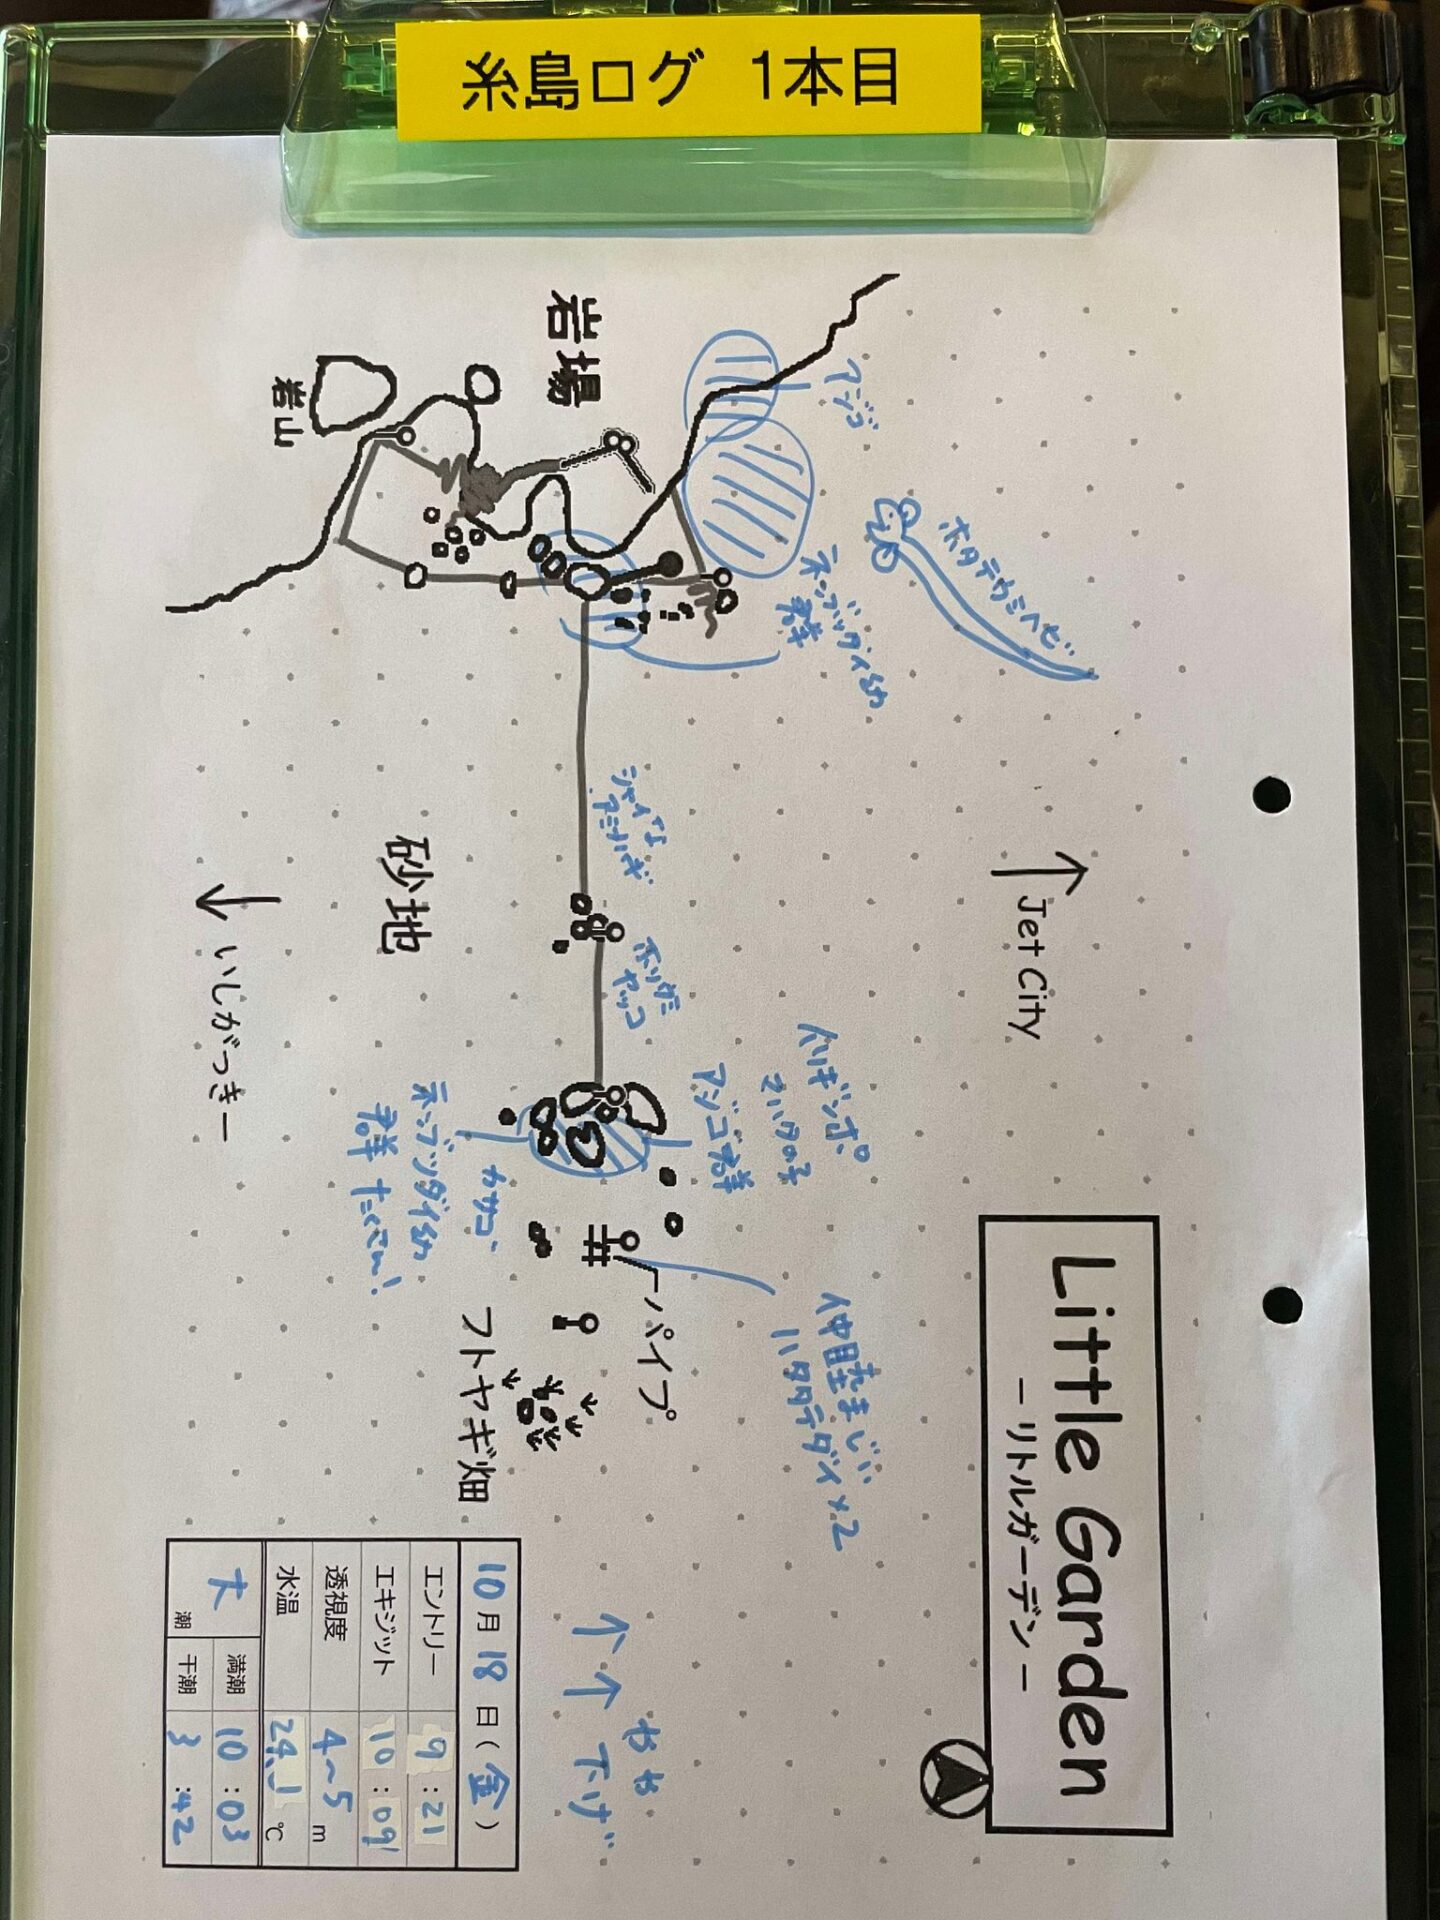 糸島ログ 1本目
Little Garden
－リトルガーデン－
↑ Jet City
岩場
岩山
アジゴ
ホタテウミヘビ
ネンブツダイ幼
群
シャイな
アミメハギ
砂地
↓ いしがっきー
ホリゴミ
ヤッコ
イソギンポ
マハタの子
アジゴ群
カサゴ、
ネンブツダイ幼
群 たくさん!
パイプ
仲睦まじい
ハタタテダイ×2
フトヤギ畑
↑↑ やや
下げ
10月18日(金)
エントリー 9:21
エキジット 10:09
透視度 4〜5 m
水温 24.1 ℃
大潮
満潮 10:03
干潮 3:42